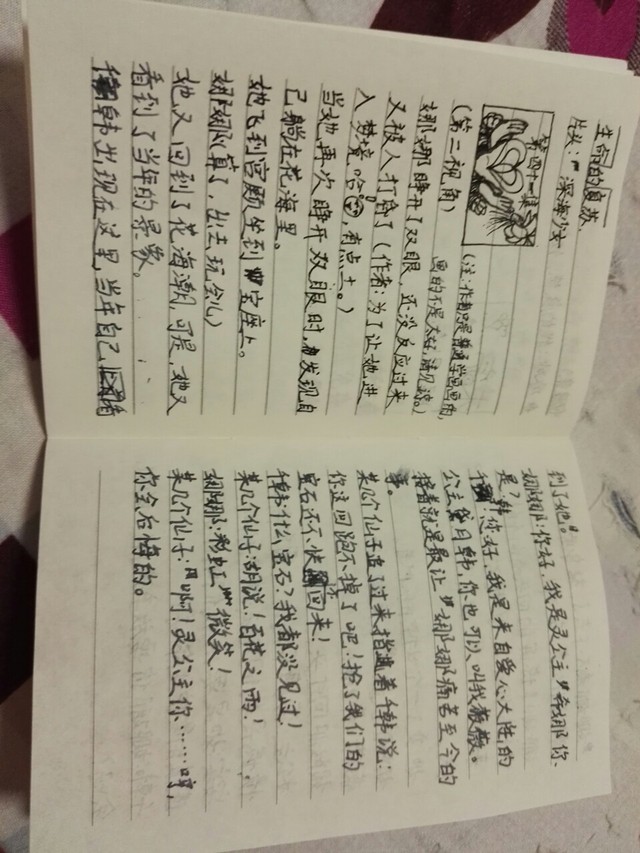 生命的魔族
片头：深海少女
第四十一集
(注：作者只是普通学画画的,
画的不是太好,请见谅。)
(第二视角)
娜娜睁开了双眼，还没反应过来
又被人打晕了(作者：为了让她进
入梦境哈，有点土。)
当她再次睁开双眼时，发现自
己躺在花海里。
她飞到宫殿坐到宝座上。
娜娜:(算了，出去玩会儿)
她又回到了花海，可是，她又
看到了当年的景象。
韩出现在这里，当年自己
到了她。
娜娜:你好，我是灵公主娜，你
是？
韩：你好，我是来自爱心大陆的
公主月韩，你也可以叫我薇薇。
接着就是最让娜娜痛苦至今的
事。
某几个仙子走了过来指着千韩说：
你这回跑不掉了吧！抢了我们的
宝石还不快还回来！
千韩：什么宝石？我都没见过！
某几个仙子：胡说！百花之雨！
娜娜：彩虹微笑！
某几个仙子：啊！灵公主你……哼，
你会后悔的。